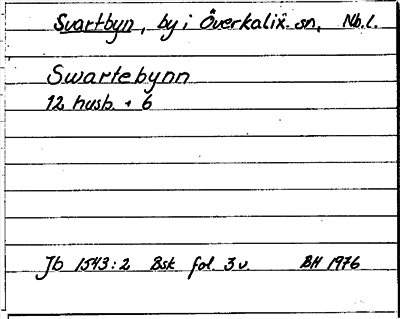 Svartbyn, by i Överkalix sn, Nb.l.
Swartebynn
12 husb. + 6
Jb 1543:2 Bsk fol. 3 v. BH 1976